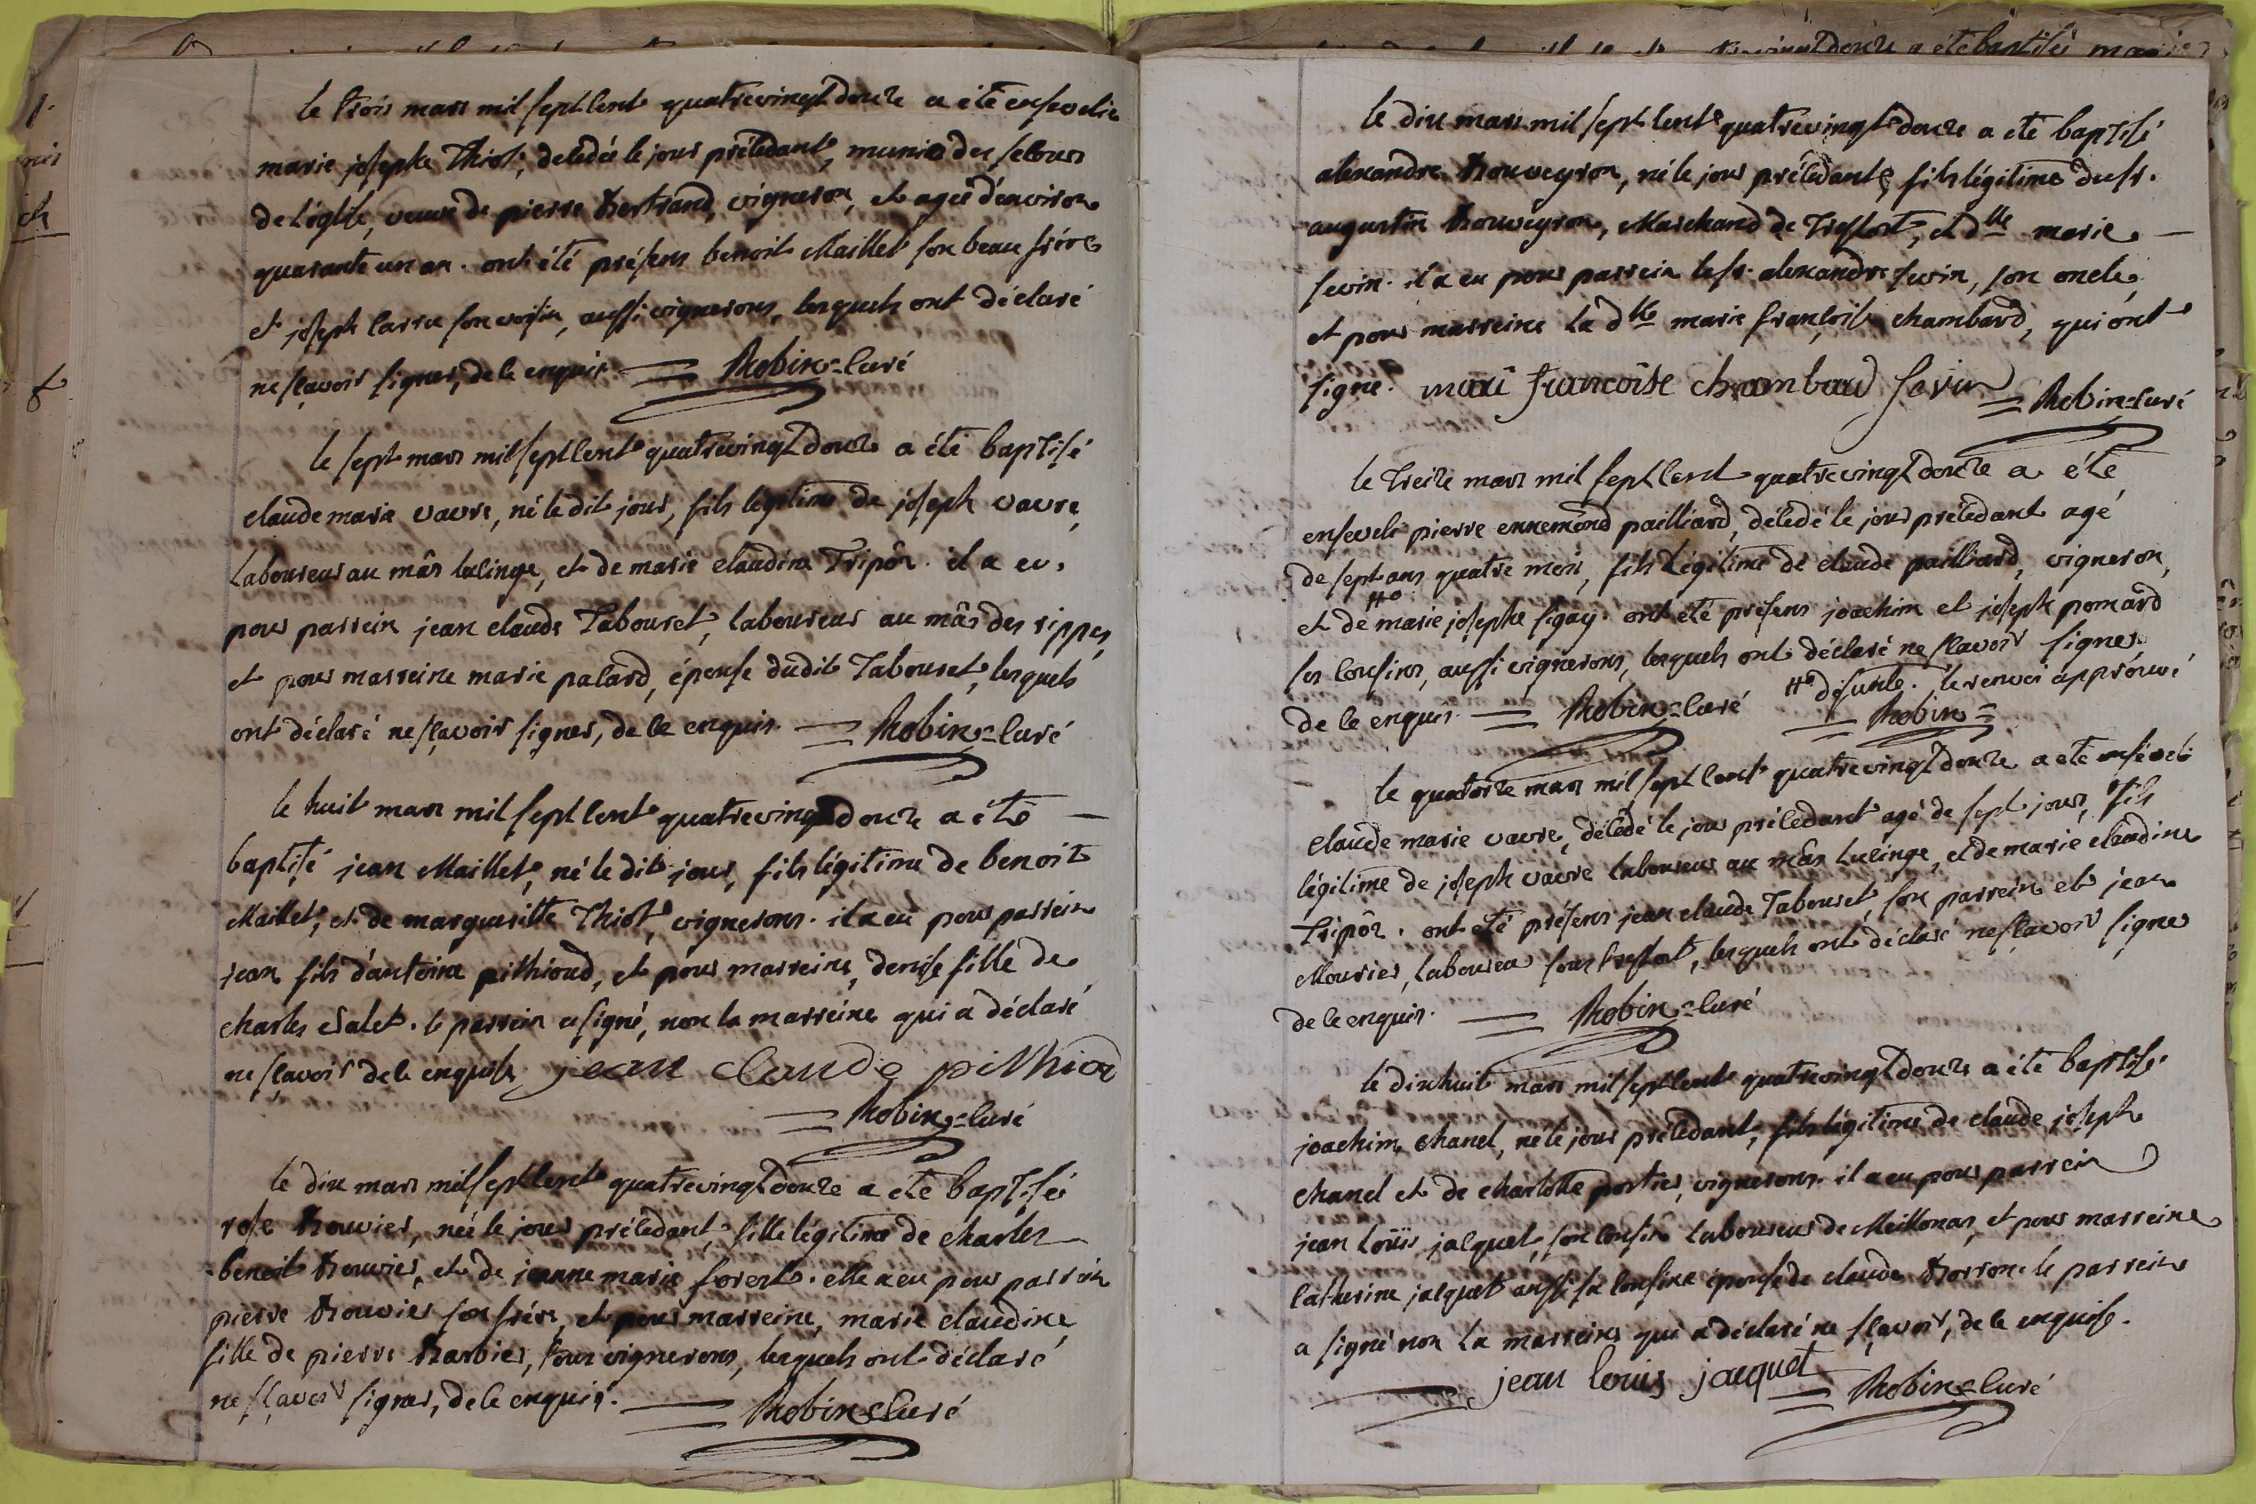 le trois mars mil sept cent quatrevingt douze a été ensevelie
marie josephe Thiot, décédée le jour précédant, munie des secours
de l'église, veuve de pierre Bertrand, vigneron, et agée d'environ
quarante un an. ont été présens benoit Maillet son beau frére
et joseph Carru son voisin, aussi vignerons, lesquels ont déclaré
ne sçavoir signer, de ce enquis. Robin = curé
le sept mars mil sept cent quatrevingt douze a été baptisé
claude marie vavre, né le dit jour, fils legitime de joseph vavre,
Laboureur au mâs lucinge, et de marie claudine Tripôz. il a eu
pour parrein jean claude Tabouret, laboureur au mâs des rippes,
et pour marreine marie palard, épouse dudit Tabouret, lesquels
ont déclaré ne sçavoir signer, de ce enquis. Robin = curé
le huit mars mil sept cent quatrevingt douze a été
baptisé jean Maillet, né le dit jour, fils légitime de benoit
Maillet, et de margueritte Thiot, vignerons. il a eu pour parrein
jean fils d'antoine pithioud, et pour marreine, denise fille de
charles Salet. le parrein a signé, non la marreine qui a déclaré
ne sçavoir de ce enquise jean claude pithiod
Robin = curé
le dix mars mil sept cent quatrevingt douze a été baptisée
rose Bouvier, née le jour précédant, fille légitime de charles
benoit Bouvier, et de jeanne marie forest. elle a eu pour parrein
pierre Bouvier son frére, et pour marreine, marie claudine
fille de pierre Barbier, tous vignerons, lesquels ont déclaré
ne sçavoir signer, de ce enquis. Robin curé
le dix mars mil sept cent quatrevingt douze a été baptisé
alexandre Bouveyron, né le jour précédant, fils légitime du sr.
augustin Bouveyron, Marchand de Treffort, et dlle marie
sevin. il a eu pour parrein le sr. alexandre sevin, son oncle,
et pour marreine la dlle marie françoise chambard, qui ont
signé. mari francoise chambard sevin Robin = curé
le treize mars mil sept cent quatrevingt douze a été
enseveli pierre ennemond pailliard, décédé le jour précédant agé
de sept ans quatre mois, fils légitime de claude pailliard, vigneron,
et de # marie josephe figay. ont été présens joachim et joseph pomârd
ses cousins, aussi vignerons, lesquels ont déclaré ne sçavoir signer
de ce enquis. Robin = curé # défunte. le renvoi approuvé
Robin =
le quatorze mars mil sept cent quatrevingt douze a été enseveli
claude marie vavre, décédé le jour précédant agé de sept jours, fils
légitime de joseph vavre laboureur au mâs Lucinge, et de marie claudine
Tripôz. ont été présens jean claude Tabouret, son parrein et jean
Mourier, Laboureur sous treffort, lesquels ont déclaré ne sçavoir signer
de ce enquis. Robin = curé
le dixhuit mars mil sept cent quatrevingt douze a été baptisé
joachim chanel, né le jour précédant, fils légitime de claude joseph
chanel et de charlotte portier, vignerons. il a eu pour parrein
jean Loüis jacquet, son cousin Laboureur de Meillonas, et pour marreine
catherine jacquet aussi sa cousine épouse de claude Borron. le parrein
a signé non la marreine qui a déclaré ne sçavoir, de ce enquise.
jean louis jacquet Robin = curé